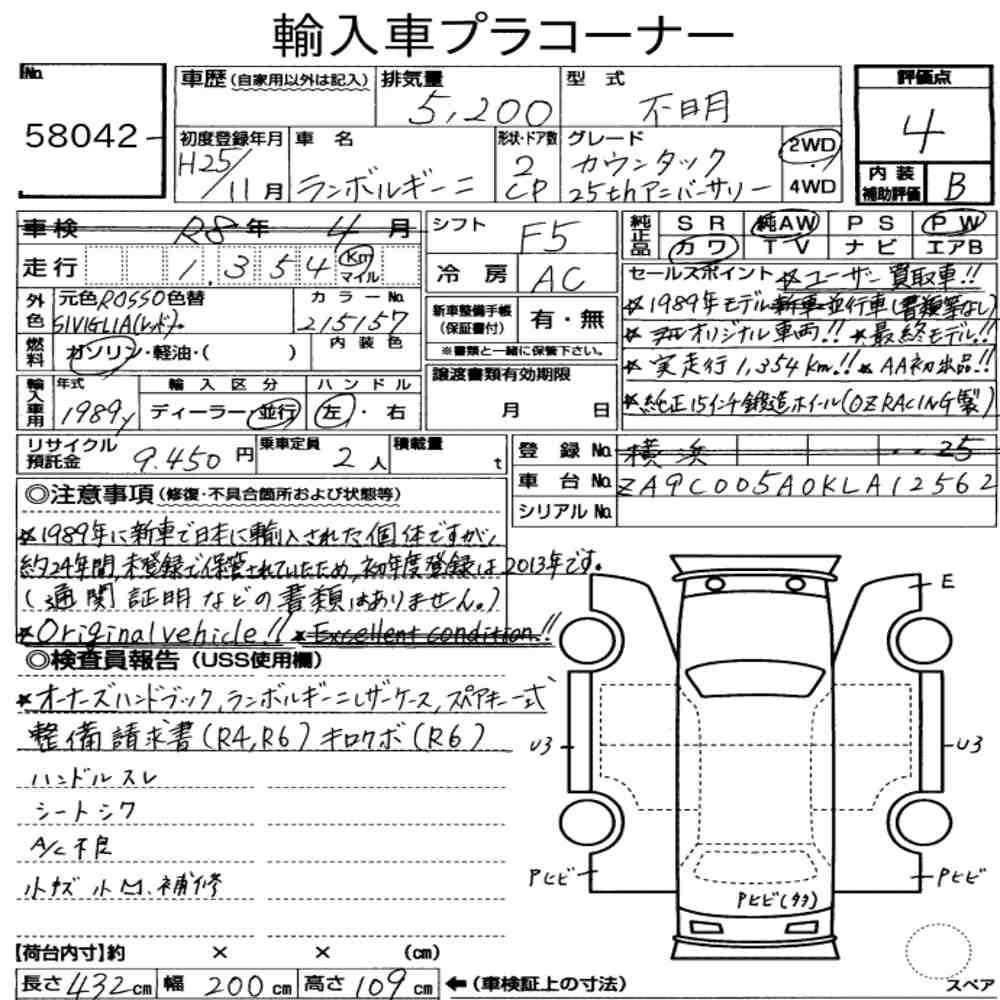 輸入車プラコーナー
No. 58042
車歴(自家用以外は記入) 排気量 5,200 型式 不明
評価点 4
初度登録年月 H25/11月 車名 ランボルギーニ 形状・ドア数 2 CP グレード カウンタック 25thアニバーサリー 2WD 4WD
内装補助評価 B
車検 R8年 4月
シフト F5
純正品 SR 純AW PS PW
カワ TV ナビ エアB
走行 1,354 Km マイル
冷房 AC
外色 元色ROSSO色替 SIVIGLIA(レッド) カラーNo. 215157
燃料 ガソリン・軽油・( ) 内装色
新車整備手帳(保証書付) 有・無
※書類と一緒に保管下さい。
セールスポイント ★ユーザー買取車!!
★1989年モデル新車並行車(書類等なし)
★フルオリジナル車両!! ★最終モデル!!
★実走行1,354km!! ★AA初出品!!
★純正15インチ鍛造ホイール(OZ RACING製)
輸入車用 年式 1989y 輸入区分 ディーラー・並行 ハンドル 左・右
譲渡書類有効期限 月 日
リサイクル預託金 9,450円 乗車定員 2人 積載量 t
登録No. 横浜 ・・25
車台No. ZA9C005A0KLA12562
シリアルNo.
◎注意事項(修復・不具合箇所および状態等)
★1989年に新車で日本に輸入された個体ですが、
約24年間、未登録で保管されていたため、初年度登録は2013年です。
(通関証明などの書類はありません。)
★Original vehicle!! ★Excellent condition!!
◎検査員報告(USS使用欄)
★オーナーズハンドブック,ランボルギーニレザーケース,スペアキー一式
整備請求書(R4,R6)キロクボ(R6)
ハンドルスレ
シートシワ
A/C不良
小キズ小凹、補修
E
U3 U3
Pヒビ Pヒビ
Pヒビ(タヲ)
【荷台内寸】約 × × (cm)
長さ432cm 幅200cm 高さ109cm ←(車検証上の寸法)
スペア